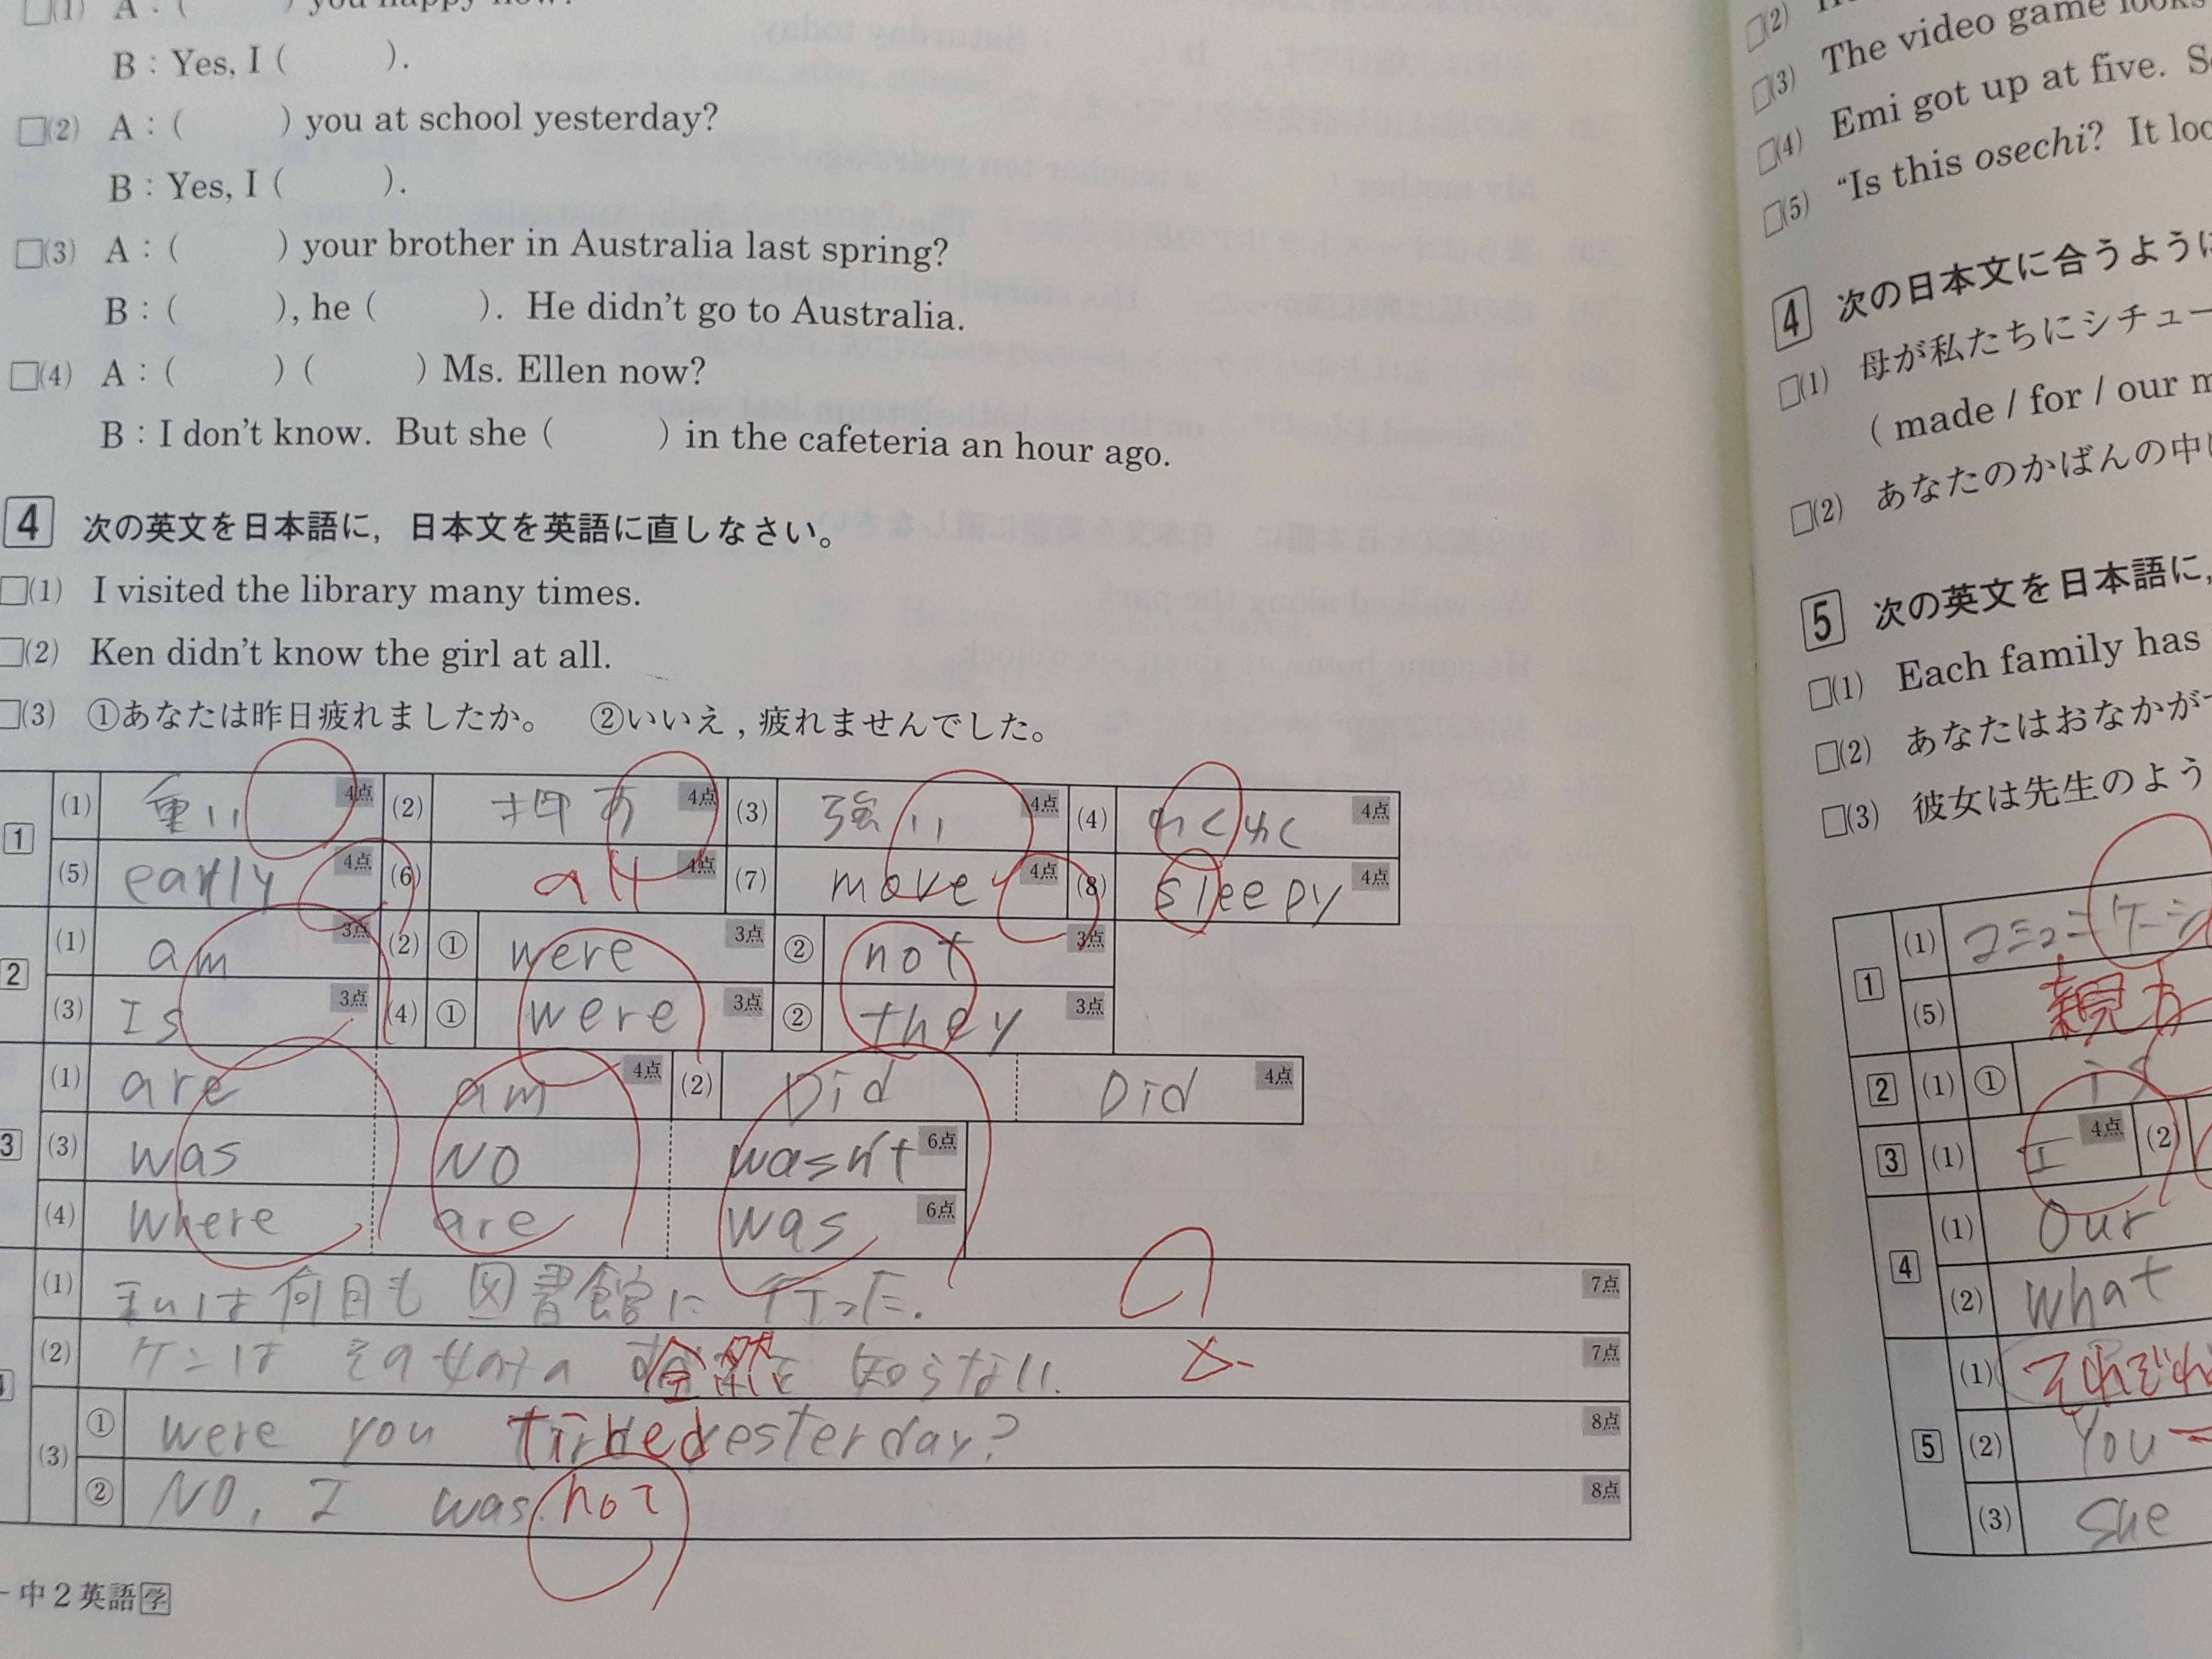 (1) A : ( ) you happy now?
B : Yes, I ( ).
(2) A : ( ) you at school yesterday?
B : Yes, I ( ).
(3) A : ( ) your brother in Australia last spring?
B : ( ), he ( ). He didn't go to Australia.
(4) A : ( ) ( ) Ms. Ellen now?
B : I don't know. But she ( ) in the cafeteria an hour ago.
4 次の英文を日本語に，日本文を英語に直しなさい。
(1) I visited the library many times.
(2) Ken didn't know the girl at all.
(3) ①あなたは昨日疲れましたか。 ②いいえ，疲れませんでした。
1 (1) 重い 4点 (2) 押す 4点 (3) 強い 4点 (4) わくわく 4点
(5) early 4点 (6) all 4点 (7) move 4点 (8) sleepy 4点
2 (1) am 3点 (2) ① were 3点 ② not 3点
(3) Is 3点 (4) ① were 3点 ② they 3点
3 (1) are am 4点 (2) Did Did 4点
(3) was NO wasn't 6点
(4) where are was 6点
(1) 私は何日も図書館に行った. 7点
(2) ケンはその女の子の 全然 知らない. 7点
(3) ① were you tired yesterday? 8点
② NO, I was not 8点
中2英語学
(2)
(3) The video game looks
(4) Emi got up at five.
(5) "Is this osechi? It
4 次の日本文に合うように
(1) 母が私たちにシチュー
( made / for / our
(2) あなたのかばんの中に
5 次の英文を日本語に，
(1) Each family has
(2) あなたはおなかが
(3) 彼女は先生のよう
1 (1) コミュニケーシ
(5) 親
2 (1) ① is
3 (1) I 4点 (2)
4 (1) Our
(2) What
5 (1) それぞれ
(2) You
(3) She